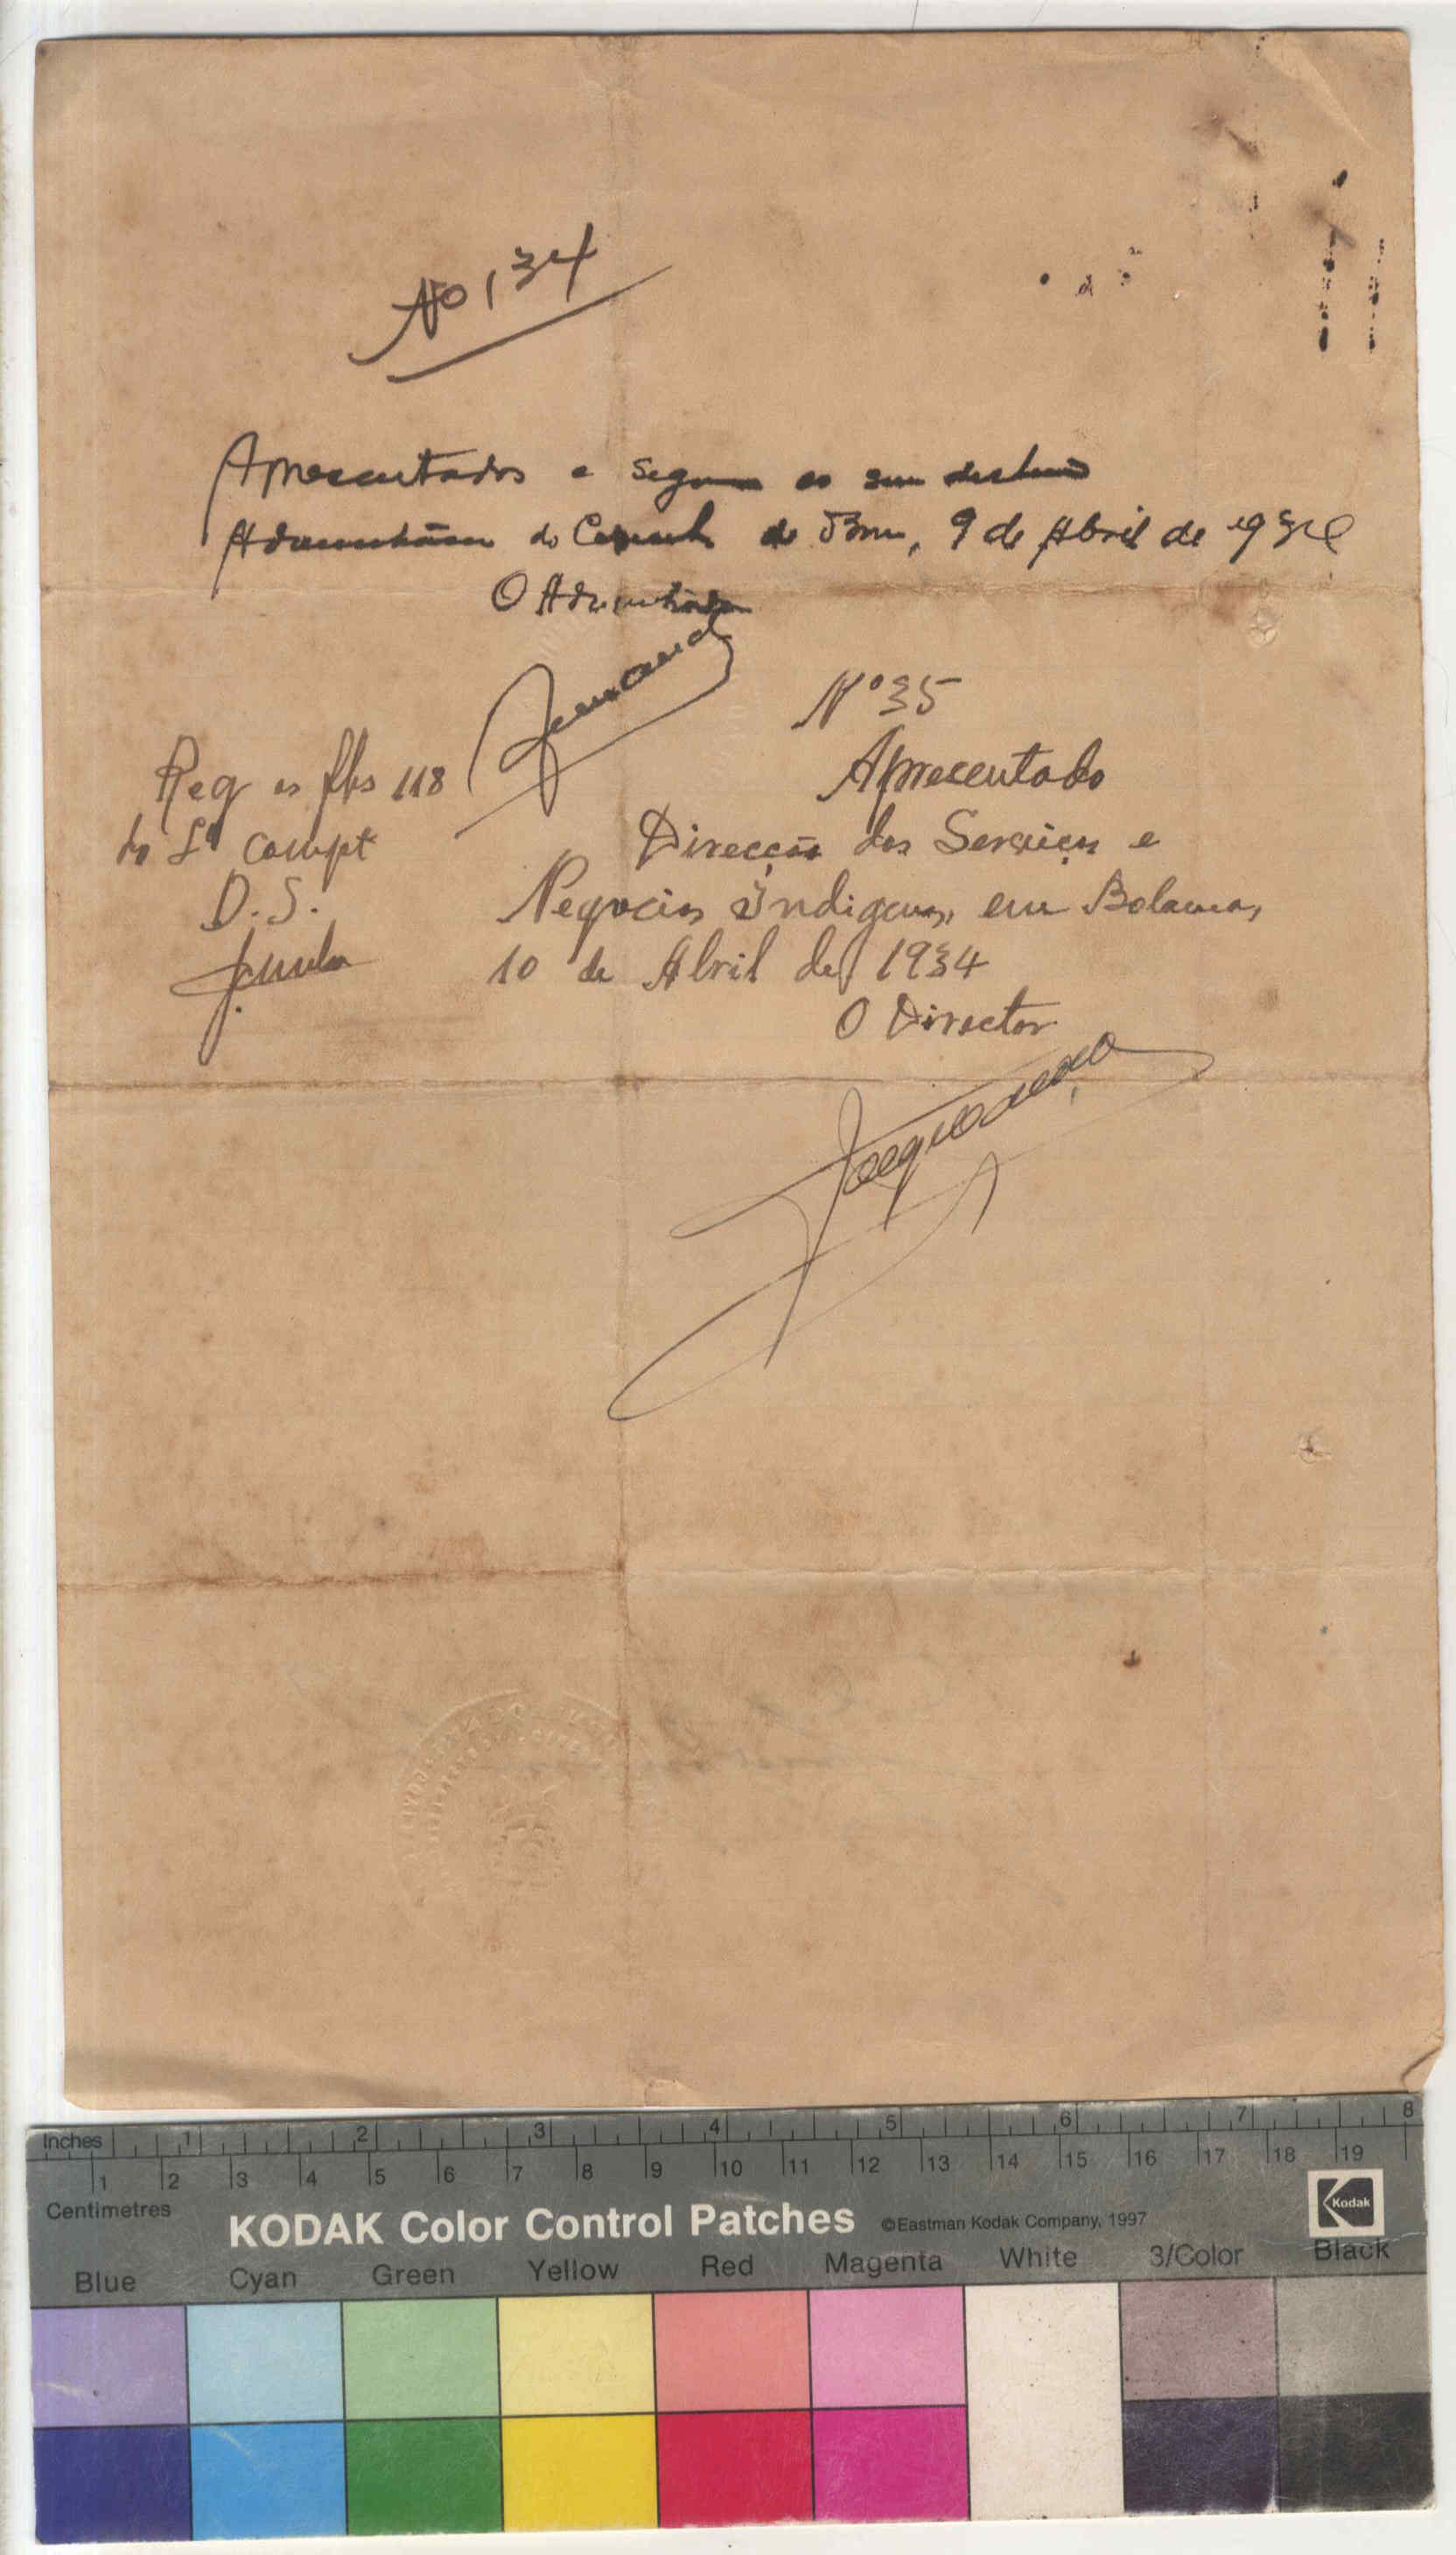 Nº 134
Apresentados e seguem ao seu destino
Administração do Concelho de 9 de Abril de 1934
O Administrador
Nº 35
Reg as fls 118
do Lº compt
D. S.
Apresentado
Direcção dos Serviços e
Negocios Indigenas, em Bolama,
10 de Abril de 1934
O Director
Inches 1 2 3 4 5 6 7 8
1 2 3 4 5 6 7 8 9 10 11 12 13 14 15 16 17 18 19
Centimetres
KODAK Color Control Patches ©Eastman Kodak Company, 1997 Kodak
Blue Cyan Green Yellow Red Magenta White 3/Color Black